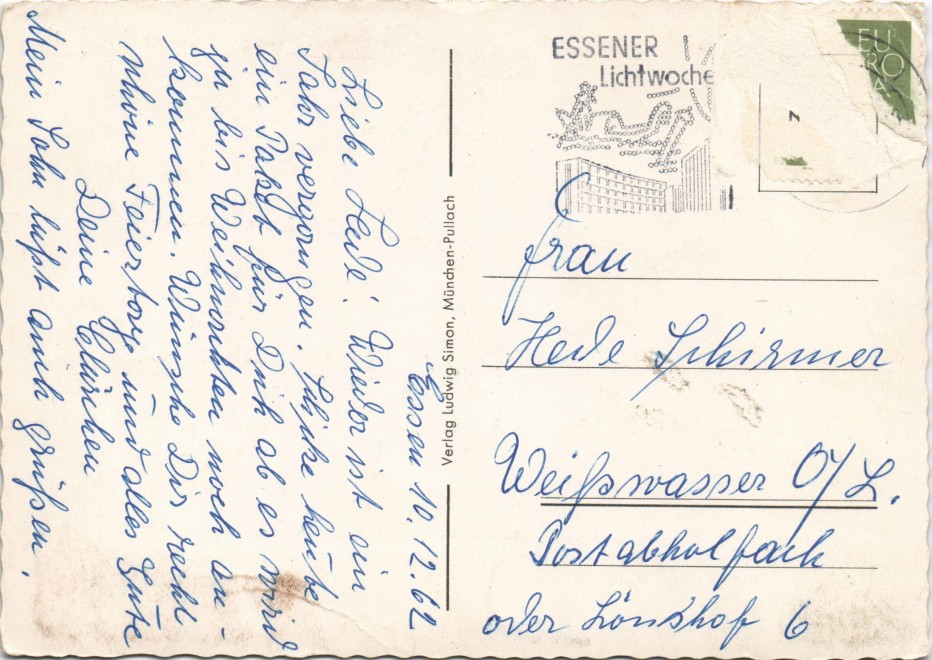 Essen 10.12.62
Liebe Hede! Wieder ist ein
Jahr vergangen. Schicke heute
ein Paket für Dich ab es wird
ja bis Weihnachten noch an-
kommen. Wünsche Dir recht
schöne Feiertage und alles Gute
Deine Clärchen
Mein Sohn läßt auch grüßen.
Verlag Ludwig Simon, München-Pullach
ESSENER
Lichtwoche
EU
RO
A
Frau
Hede Schirmer
Weißwasser O/L.
Postabholfach
oder 6